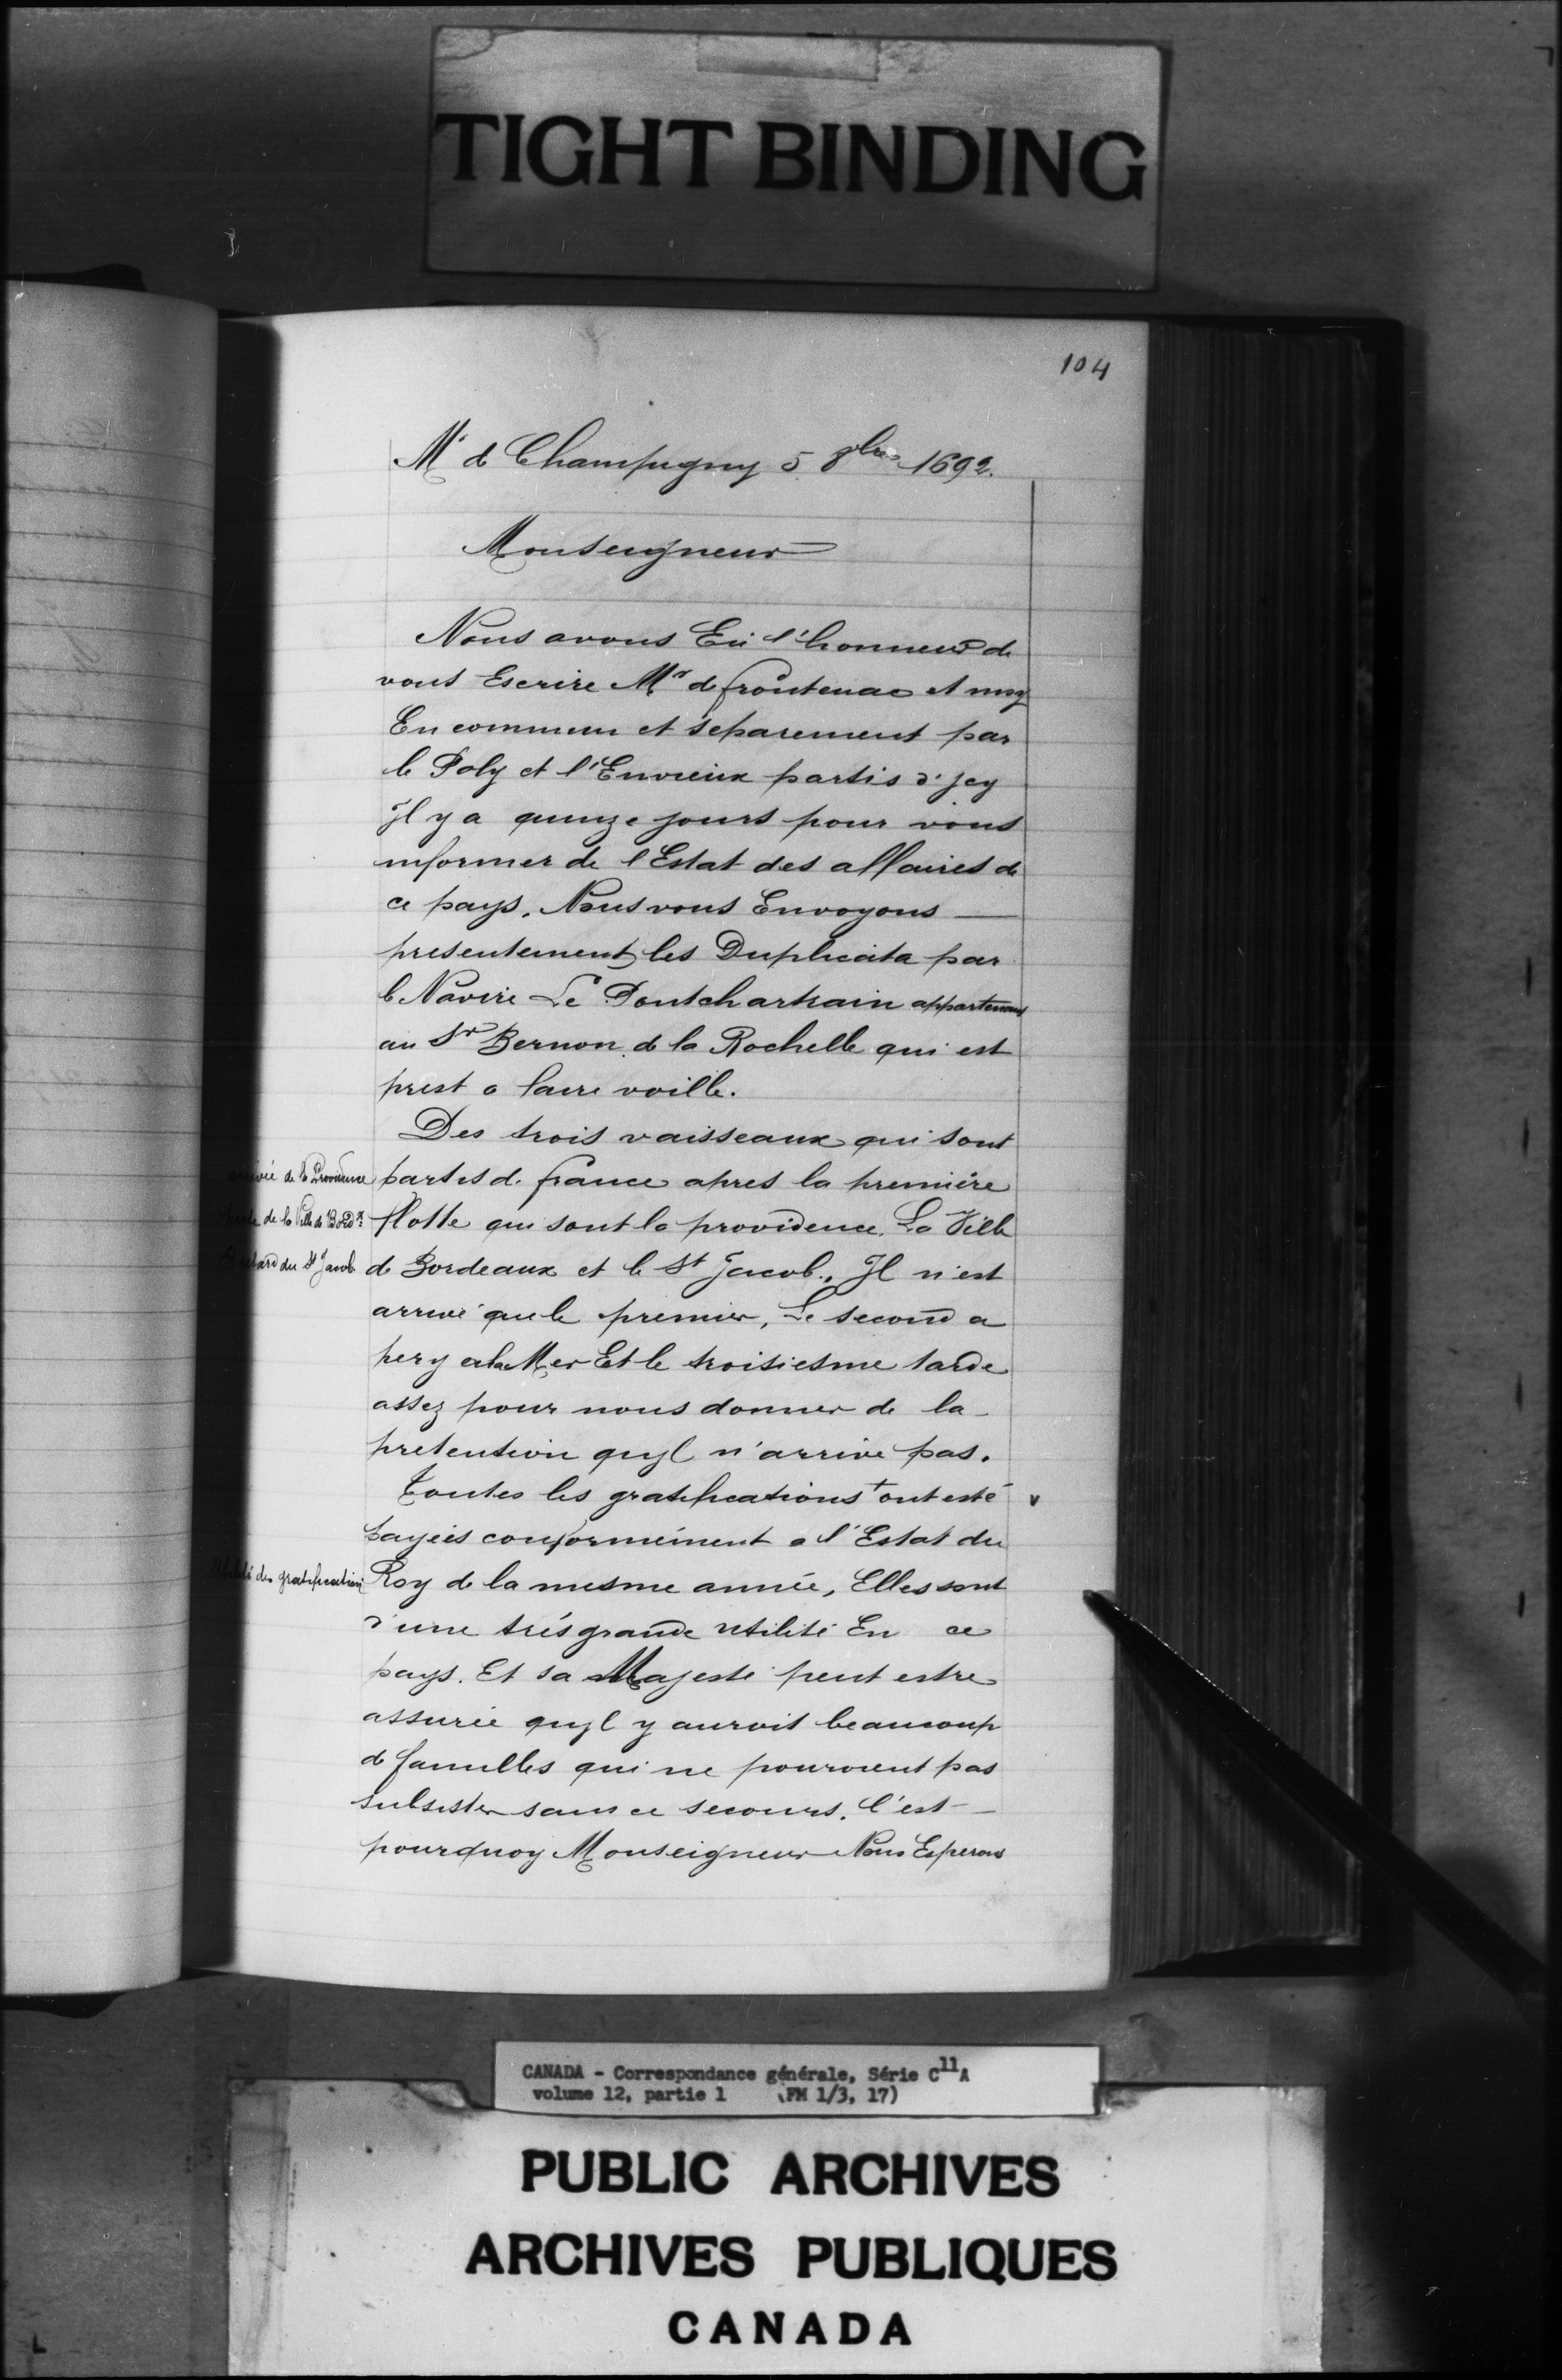 TIGHT BINDING
104
Mr de Champigny 5 8bre 1692.
Monseigneur
Nous avons Eü l'honneur de
vous Escrire Mr de frontenac et moy
En commun et separement par
le Poly et l'Envieux partis d'Jcy
Jl y a quinze jours pour vous
informer de l'Estat des affaires de
ce pays. Nous vous Envoyons
presentement les Duplicata par
le Navire Le Pontchartrain appartenant
au Sr Bernon de la Rochelle qui est
prest a faire voille.
Des trois vaisseaux qui sont
arrivée de la Providence
partis de france apres la première
perte de la Ville de Bordx
flotte qui sont la providence, La Ville
Et retard du St Jacob
de Bordeaux et le St Jacob, Jl n'est
arrivé que le premier, Le second a
pery a la Mer Et le troisiesme tarde
assez pour nous donner de la
pretention qu'yl n'arrive pas.
Toutes les gratifications + ont esté v
payées conformément a l'Estat du
Utilité des gratification
Roy de la mesme année, Elles sont
d'une trés grande utilité En ce
pays. Et sa Majesté peut estre
assurée qu'yl y auroit beaucoup
de familles qui ne pouroient pas
subsister sans ce secours. C'est
pourquoy Monseigneur Nous Esperons
CANADA - Correspondance générale, Série C11A
volume 12, partie 1 (FM 1/3, 17)
PUBLIC ARCHIVES
ARCHIVES PUBLIQUES
CANADA